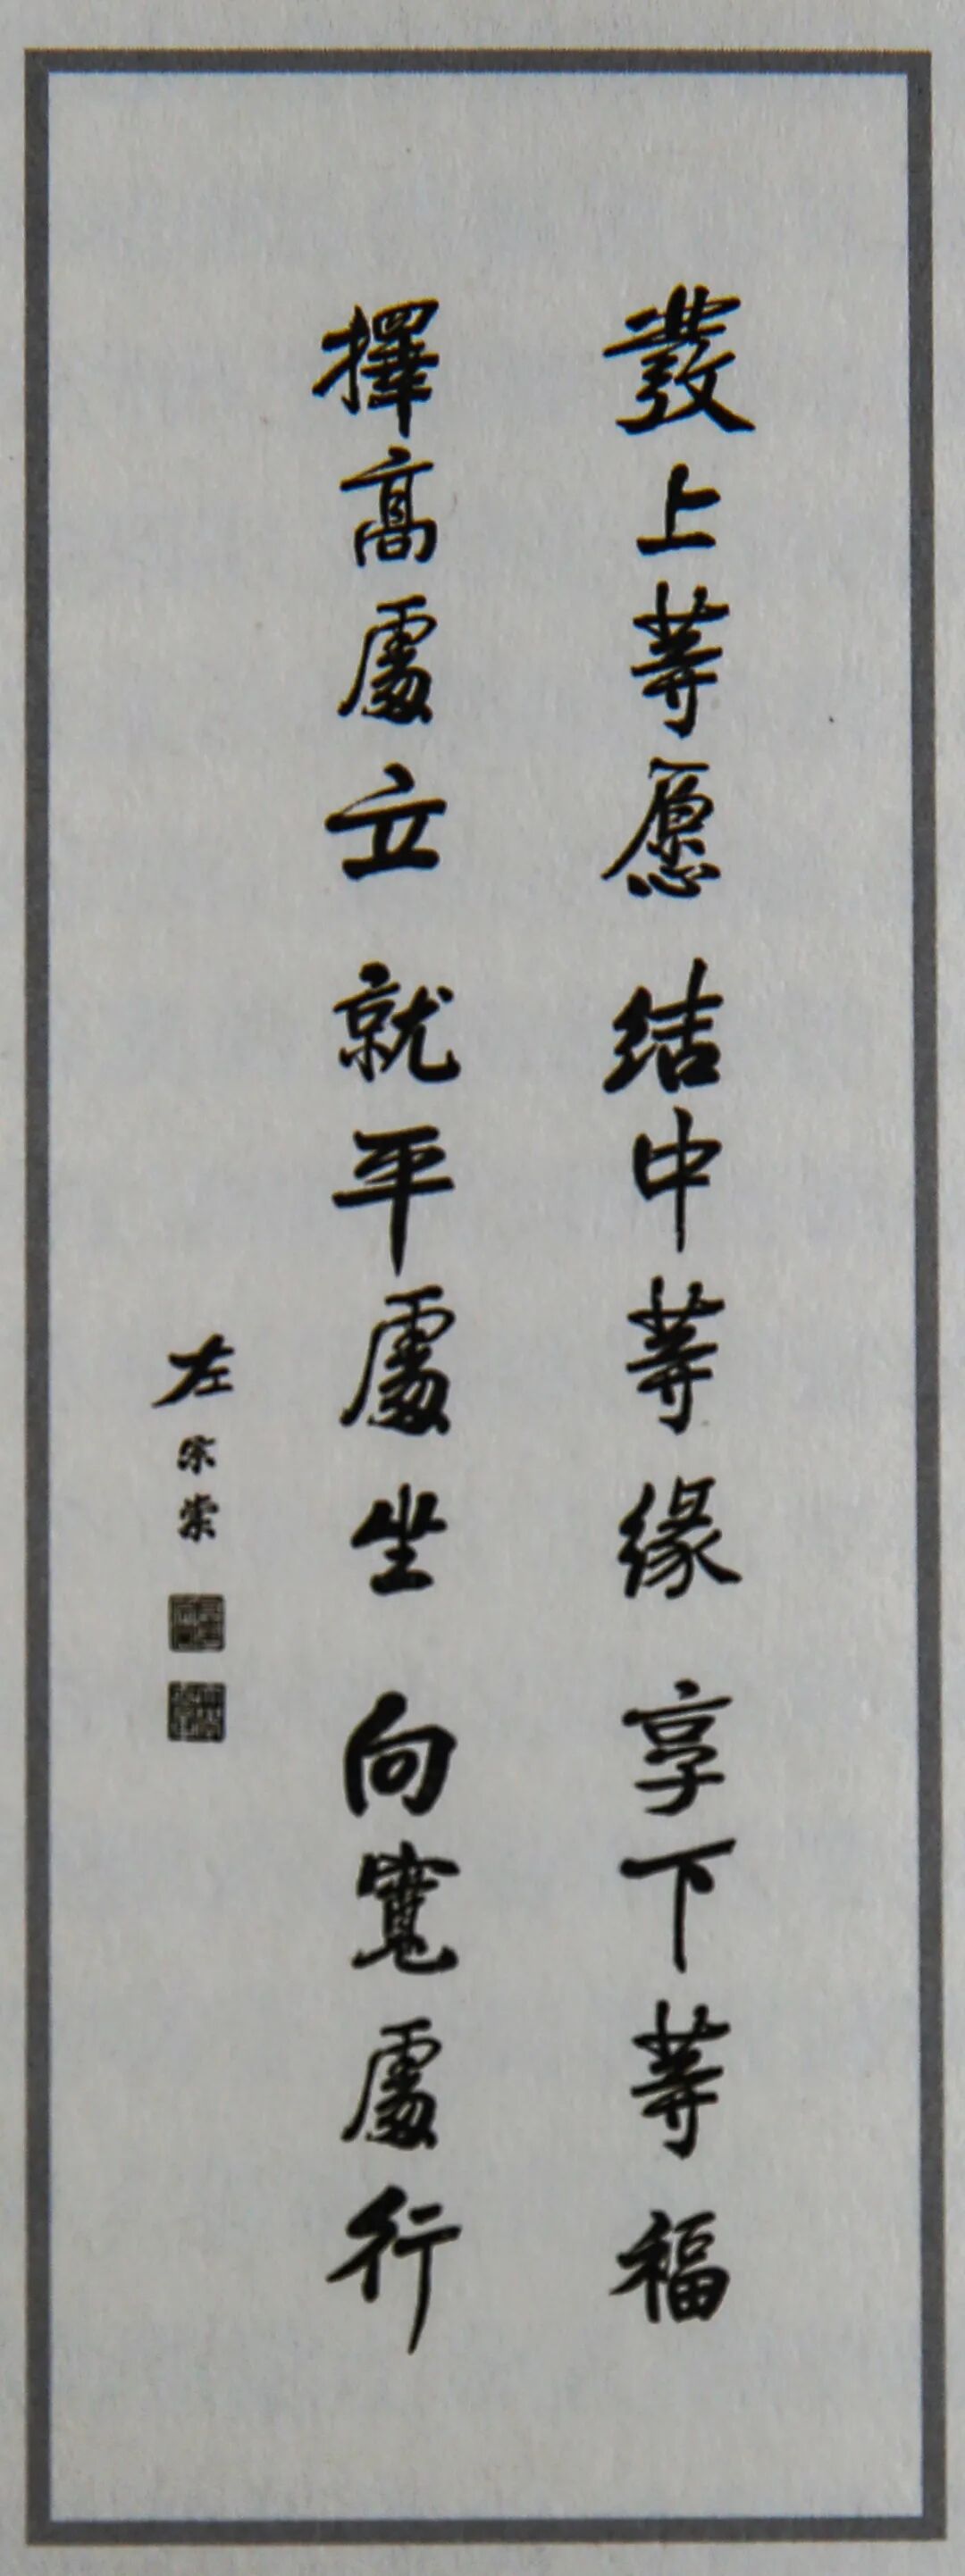 發上等愿 结中等缘 享下等福
擇高處立 就平處坐 向寬處行
左宗棠